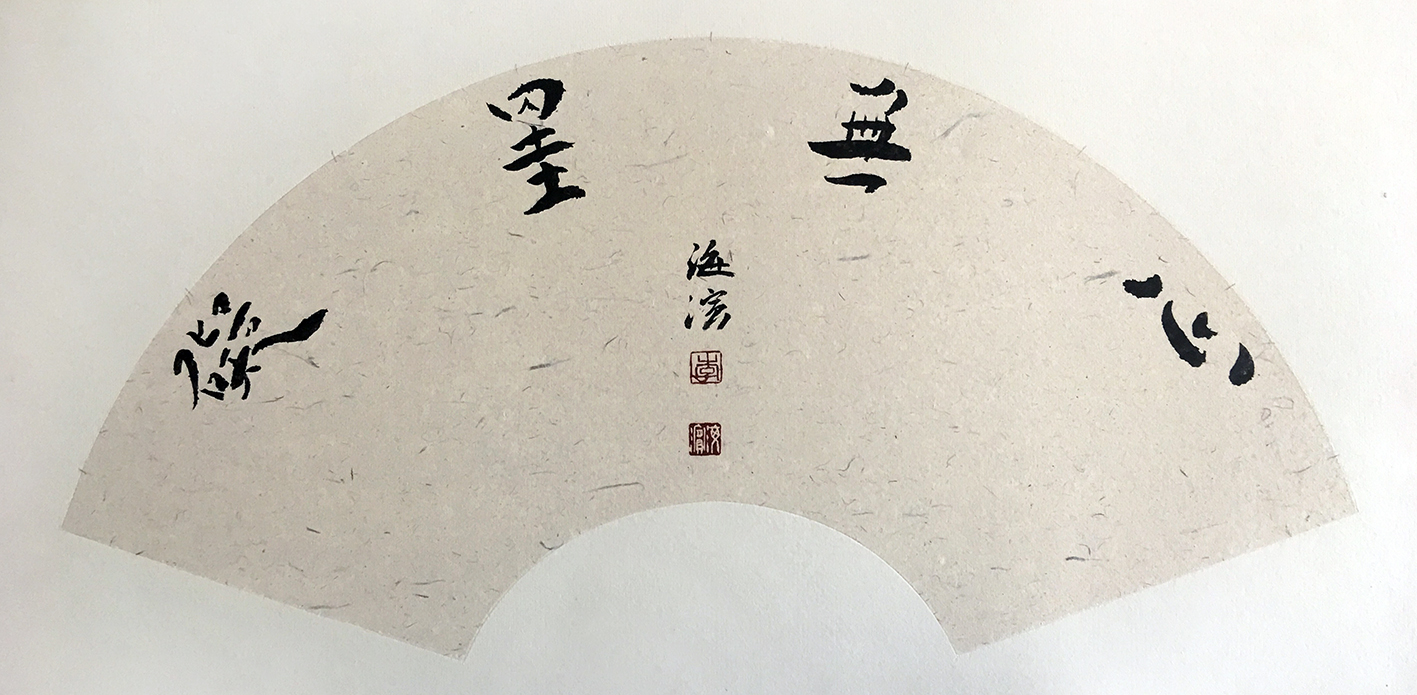 心無罣礙
海濱
李